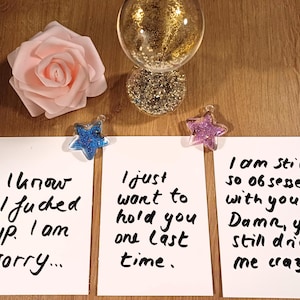 I know
I fucked
up. I am
sorry...
I just
want to
hold you
one last
time.
I am still
so obsessed
with you.
Damn, you
still drive
me crazy